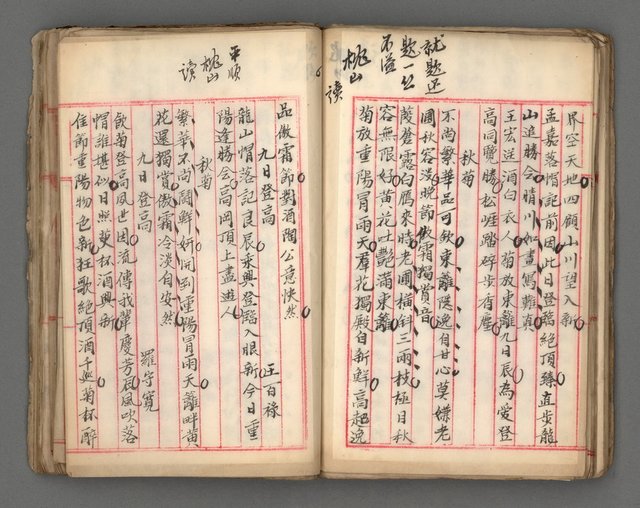 就題還
題一公
不溢
桃山
讀
界空天地四顧山川望入新
孟嘉落帽記前因此日登臨絕頂臻直步龍
山追勝会晴川如畫寫難真
王宏送酒白衣人菊放東籬九日辰為愛登
高同覽勝松崖踏碎步香塵
秋菊
不尚繁華品可欽東籬隱逸自甘心莫嫌老
圃秋容淡晚節傲霜獨賞音
葭蒼露白雁來時老圃橫斜三兩枝極目秋
容無限好黃花吐艷滿東籬
菊放重陽冒雨天羣花獨殿自新鮮高超逸
品傲霜節對酒陶公意快然
九日登高
王百祿
龍山帽落記良辰乘興登臨入眼新今日重
陽逢勝会高岡頂上盡遊人
秋菊
繁華不尚鬪鮮妍開到重陽冒雨天籬畔黃
花還獨賞傲霜冷淡自安然
九日登高
羅守寬
飲菊登高風世因流傳我輩慶芳辰風吹落
帽誰堪似日照萸杯酒興新
佳節重陽物色新狂歌絕頂酒千巡菊杯醉
平順
桃山
讀